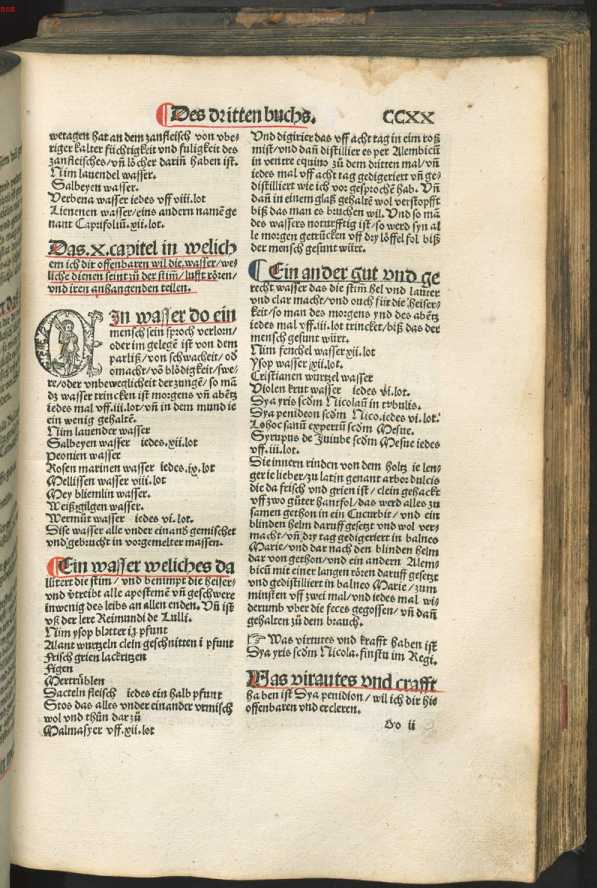 Des dritten buchs.
CCXX
wetagen hat an dem zanfleisch von vbe-
riger kalter füchtigkeit vnd fuligkeit des
zanfleisches/vñ lőcher darin haben ist.
Nim lauendel wasser.
Salbeyen wasser.
Verbena wasser iedes vff viii.lot
Lienenen wasser/eins andern namẽ ge
nant Caprifoliũ.xii.lot.
Das.x.capitel in welich
em ich dir offenbaren wil die wasser/we/
liche dienen seint zů der stim/lufft rören/
vnd iren anhangenden teilen.
In wasser do ein
mensch sein sproch verlorn/
oder im gelegẽ ist von dem
parliß/von schwacheit/od
omacht/võ blődigkeit/swe-
re/oder vnbeweglicheit der zungẽ/so mã
dz wasser trincken ist morgens vñ abẽtz
iedes mal vff.iii.lot/vñ in dem mund ie
ein wenig gehaltẽ.
Nim lauender wasser
Salbeyen wasser iedes.xii.lot
Peonien wasser
Rosen marinen wasser iedes.ix.lot
Mellissen wasser viii.lot
Mey bliemlin wasser.
Weißgilgen wasser.
Wermůt wasser iedes vi.lot.
Dise wasser alle vnder einand gemischet
vnd gebrucht in vorgemelter massen.
Ein wasser weliches da
lutert die stim/vnd benimpt die heiser-
vnd vtreibt alle apostemẽ vñ geschwere
inwenig des leibs an allen enden. Vñ ist
vß der lere Reimundi de Lulli.
Nim ysop bletter iz pfunt
Alant wurtzeln clein geschnitten i pfunt
Frisch grien lackritzen
Figen
Mertrüblen
Dacteln fleisch iedes ein halb pfunt
Stos das alles vnder einander vrmisch
wol vnd thůn dar zů
Malmasyer vff.xii.lot
Vnd digirier das vff acht tag in eim roß
mist/vnd dañ distillier es per Alembicũ
in ventre equino zů dem dritten mal/vñ
iedes mal vff acht tag gedigeriert vñ ge-
distilliert wie ich vor gesprochẽ hab. Vñ
dañ in einem glaß gehaltẽ wol verstopfft
biß das man es bruchen wil. Vnd so mã
des wassers noturfftig ist/so werd syn al
le morgen getrücken vff dry lőffel fol biß
der mensch gesunt würt.
Ein ander gut vnd ge
recht wasser das die stim hel vnd lauter
vnd clar macht/vnd ouch für die heiser-
keit/so man des morgens ynd des abẽtz
iedes mal vff.iii.lot trincket/biß das der
mensch gesunt würt.
Nim fenchel wasser xii.lot
Ysop wasser xii.lot.
Cristianen wurtzel wasser
Violen krut wasser iedes vi.lot.
Dya yris scdm Nicolaũ in tvbulis.
Dya penideon scdm Nico.iedes vi.lot.
Lohoc sanũ expertũ scdm Mesue.
Syrupus de Iuiube scdm Mesue iedes
vff.iii.lot.
Die innern rinden von dem holtz ie len-
ger ie lieber/zu latin genant arbor dulcis
die da frisch vnd grien ist/clein gehackt
vff zwo gůter hantfol/das werd alles zu
samen gethon in ein Cucurbit/vnd ein
blinden helm daruff gesetzt vnd wol ver-
macht/vñ dry tag gedigeriert in balneo
Marie/vnd dar nach den blinden helm
dar von gethon/vnd ein andern Alem-
bicũ mit einer langen rören daruff gesetzt
vnd gedistilliert in balneo Marie/zum
minsten vff zwei mal/vnd iedes mal wi-
derumb vber die feces gegossen/vñ dañ
gehalten zů dem brauch.
☞ Was virtutes vnd krafft haben ist
Dya yris scdm Nicola. finstu im Regi.
Was virautes vnd crafft
haben ist Dya penidion/wil ich dir hie
offenbaren vnd ercleren.
Oo ii